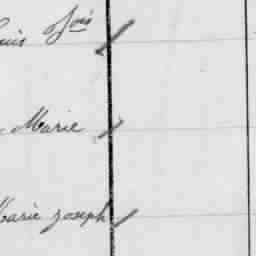 ouis Fois
Marie
Marie Joseph